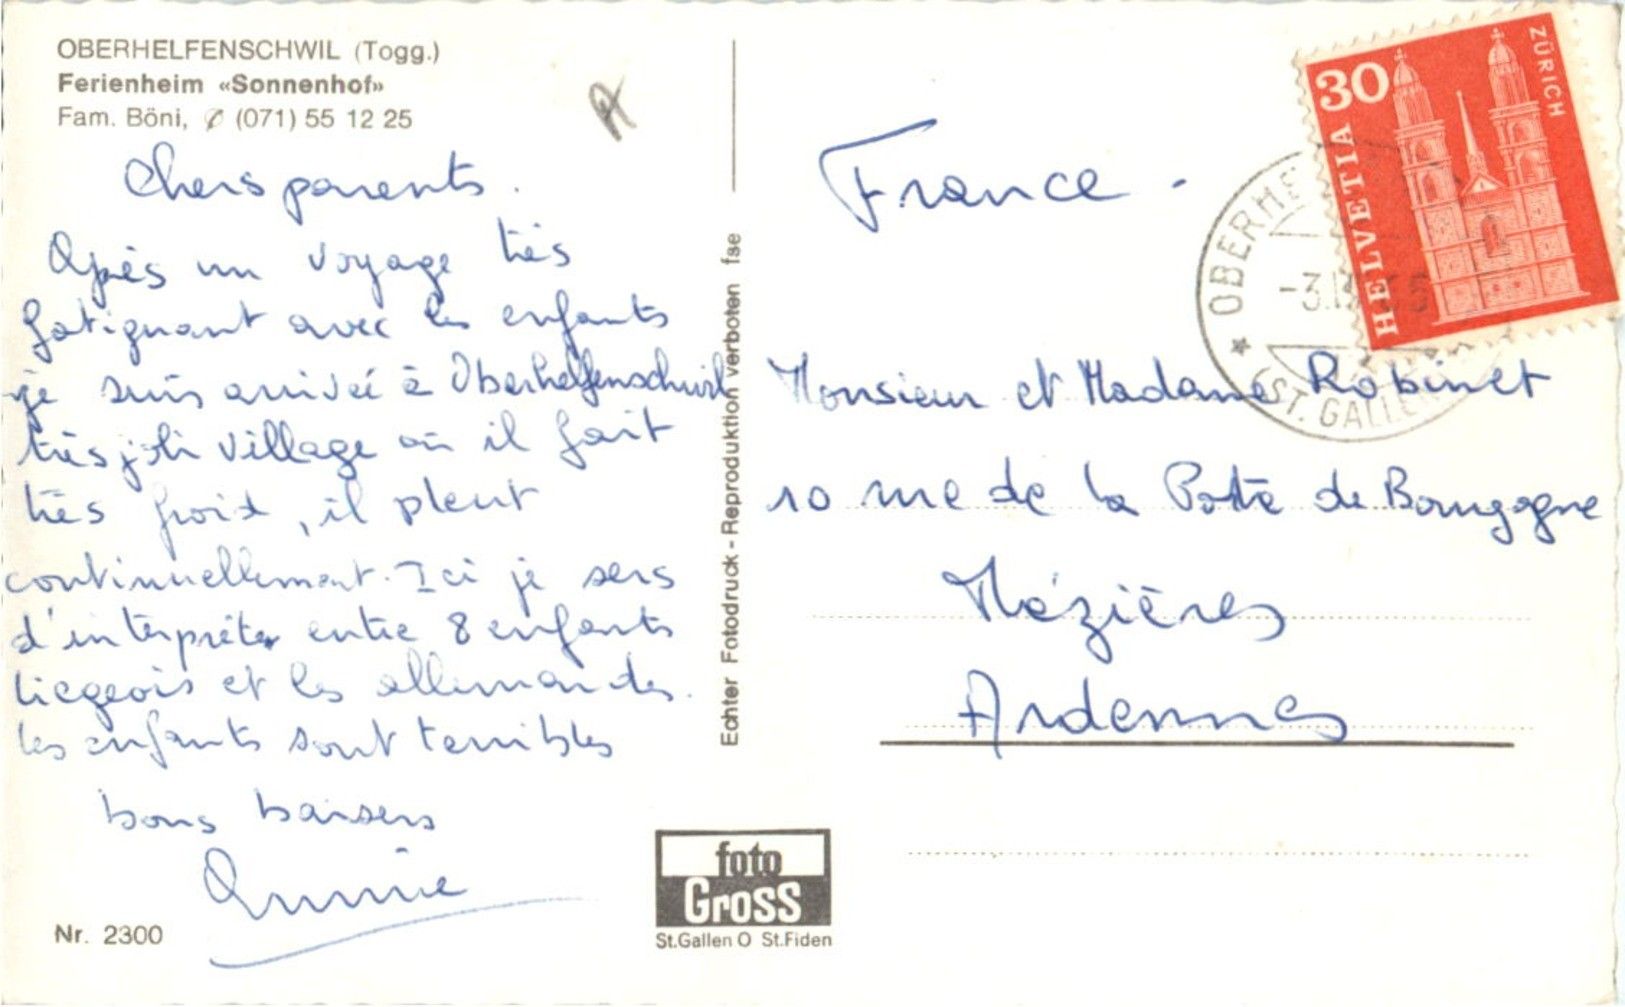 OBERHELFENSCHWIL (Togg.)
Ferienheim «Sonnenhof»
Fam. Böni, ✆ (071) 55 12 25
A
Chers parents.
Après un voyage très
fatignant avec les enfants
je suis arrivée à Oberhelfenschwil
très joli village où il fait
très froid, il pleut
continuellement. Ici je sers
d'interprète entre 8 enfants
liegeois et les allemandes.
les enfants sont terribles
bons baisers
Annie
Nr. 2300
Echter Fotodruck - Reproduktion verboten fse
foto
Gross
St.Gallen O St.Fiden
30
HELVETIA
ZÜRICH
OBERHE
-3.
(ST. GALLEN
France -
Monsieur et Madame Robinet
10 rue de la Porte de Bourgogne
Mézières
Ardennes